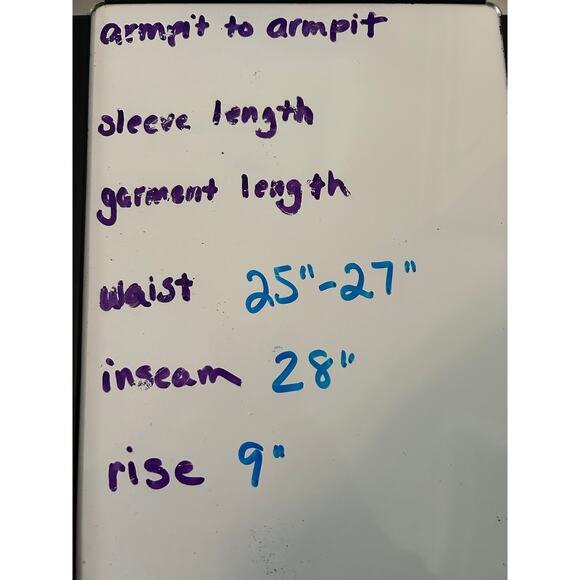 armpit to armpit
sleeve length
garment length
waist 25"-27"
inseam 28"
rise 9"